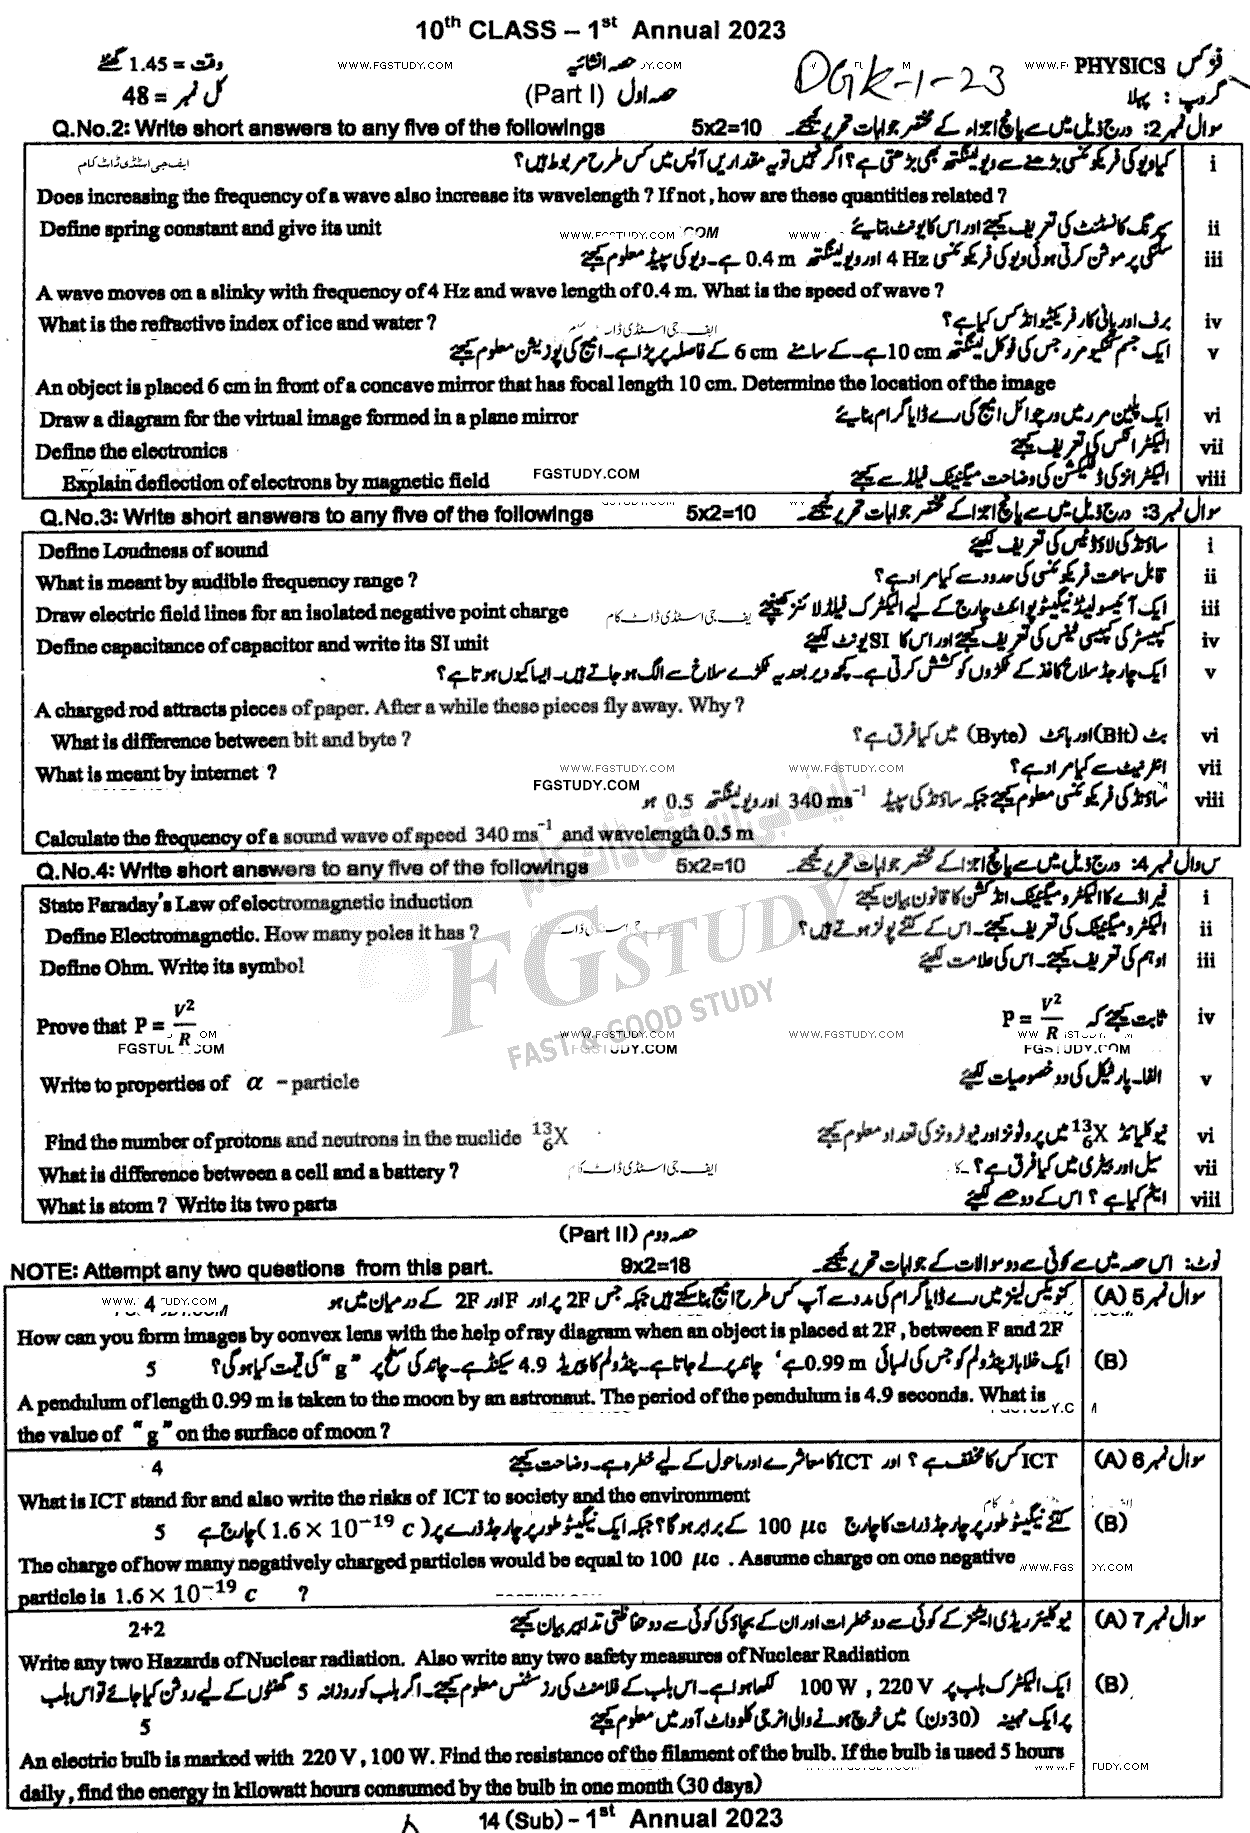 10th CLASS – 1st Annual 2023
وقت = 1.45 گھنٹے WWW.FGSTUDY.COM حصہ انشائیہ DGK-1-23 PHYSICS فزکس
کل نمبر = 48 (Part I) حصہ اول گروپ : پہلا
Q.No.2: Write short answers to any five of the followings 5x2=10 سوال نمبر 2: درج ذیل میں سے پانچ اجزاء کے مختصر جوابات تحریر کیجئے۔
i کیا ویو کی فریکوئنسی بڑھنے سے ویولینگتھ بھی بڑھتی ہے؟ اگر نہیں تو یہ مقداریں آپس میں کس طرح مربوط ہیں؟ ایف جی اسٹڈی ڈاٹ کام
Does increasing the frequency of a wave also increase its wavelength ? If not , how are these quantities related ?
Define spring constant and give its unit سپرنگ کانسٹنٹ کی تعریف کیجئے اور اس کا یونٹ بتائیے ii
iii سلنکی پر موشن کرتی ہوئی ویو کی فریکوئنسی 4 Hz اور ویولینگتھ 0.4 m ہے۔ ویو کی سپیڈ معلوم کیجئے
A wave moves on a slinky with frequency of 4 Hz and wave length of 0.4 m. What is the speed of wave ?
What is the refractive index of ice and water ? برف اور پانی کا رفریکٹیو انڈکس کیا ہے؟ iv
v ایک جسم کنکیو مرر جس کی فوکل لینگتھ 10 cm ہے۔ کے سامنے 6 cm کے فاصلہ پر پڑا ہے۔ امیج کی پوزیشن معلوم کیجئے
An object is placed 6 cm in front of a concave mirror that has focal length 10 cm. Determine the location of the image
Draw a diagram for the virtual image formed in a plane mirror ایک پلین مرر میں ورچوئل امیج کی رے ڈایاگرام بنائیے vi
Define the electronics الیکٹرانکس کی تعریف کیجئے vii
Explain deflection of electrons by magnetic field FGSTUDY.COM الیکٹرانز کی ڈفلیکشن کی وضاحت میگنیٹک فیلڈ سے کیجئے viii
Q.No.3: Write short answers to any five of the followings 5x2=10 سوال نمبر 3: درج ذیل میں سے پانچ اجزا کے مختصر جوابات تحریر کیجئے۔
Define Loudness of sound ساؤنڈ کی لاؤڈنیس کی تعریف لکھئے i
What is meant by audible frequency range ? قابل سماعت فریکوئنسی کی حدود سے کیا مراد ہے؟ ii
Draw electric field lines for an isolated negative point charge ایک آئیسولیٹڈ نیگیٹو پوائنٹ چارج کے لیے الیکٹرک فیلڈ لائنز کھینچئے iii
Define capacitance of capacitor and write its SI unit کپیسٹر کی کپیسی ٹینس کی تعریف کیجئے اور اس کا SI یونٹ لکھئے iv
v ایک چارجڈ سلاخ کاغذ کے ٹکڑوں کو کشش کرتی ہے۔ کچھ دیر بعد یہ ٹکڑے سلاخ سے الگ ہو جاتے ہیں۔ ایسا کیوں ہوتا ہے؟
A charged rod attracts pieces of paper. After a while these pieces fly away. Why ?
What is difference between bit and byte ? بٹ (Bit) اور بائٹ (Byte) میں کیا فرق ہے؟ vi
What is meant by internet ? WWW.FGSTUDY.COM WWW.FGSTUDY.COM انٹرنیٹ سے کیا مراد ہے؟ vii
FGSTUDY.COM viii ساؤنڈ کی فریکوئنسی معلوم کیجئے جبکہ ساؤنڈ کی سپیڈ 340 ms⁻¹ اور ویولینگتھ 0.5 ہو
Calculate the frequency of a sound wave of speed 340 ms⁻¹ and wavelength 0.5 m
Q.No.4: Write short answers to any five of the followings 5x2=10 سوال نمبر 4: درج ذیل میں سے پانچ اجزا کے مختصر جوابات تحریر کیجئے۔
State Faraday's Law of electromagnetic induction فیراڈے کا الیکٹرومیگنیٹک انڈکشن کا قانون بیان کیجئے i
Define Electromagnetic. How many poles it has ? الیکٹرومیگنیٹک کی تعریف کیجئے۔ اس کے کتنے پولز ہوتے ہیں؟ ii
Define Ohm. Write its symbol اوہم کی تعریف کیجئے۔ اس کی علامت لکھئے iii
FGSTUDY
FAST & GOOD STUDY
Prove that P = V²/R ثابت کیجئے کہ P = V²/R iv
FGSTUDY.COM
Write to properties of α – particle الفا۔ پارٹیکل کی دو خصوصیات لکھئے v
Find the number of protons and neutrons in the nuclide ¹³₆X نیوکلیائڈ ¹³₆X میں پروٹونز اور نیوٹرونز کی تعداد معلوم کیجئے vi
What is difference between a cell and a battery ? سیل اور بیٹری میں کیا فرق ہے؟ vii
What is atom ? Write its two parts ایٹم کیا ہے ؟ اس کے دو حصے لکھئے viii
(Part II) حصہ دوم
NOTE: Attempt any two questions from this part. 9x2=18 نوٹ: اس حصہ میں سے کوئی سے دو سوالات کے جوابات تحریر کیجئے۔
سوال نمبر 5 (A) کنویکس لینز میں رے ڈایاگرام کی مدد سے آپ کس طرح امیج بنا سکتے ہیں جبکہ جس 2F پر اور F اور 2F کے درمیان میں ہو 4
How can you form images by convex lens with the help of ray diagram when an object is placed at 2F , between F and 2F
(B) ایک خلا باز پنڈولم کو جس کی لمبائی 0.99 m ہے، چاند پر لے جاتا ہے۔ پنڈولم کا پیریڈ 4.9 سیکنڈ ہے۔ چاند کی سطح پر "g" کی قیمت کیا ہوگی؟ 5
A pendulum of length 0.99 m is taken to the moon by an astronaut. The period of the pendulum is 4.9 seconds. What is
the value of "g" on the surface of moon ?
سوال نمبر 6 (A) ICT کس کا مخفف ہے ؟ اور ICT کا معاشرے اور ماحول کے لیے خطرہ ہے۔ وضاحت کیجئے 4
What is ICT stand for and also write the risks of ICT to society and the environment
(B) کتنے نیگیٹو طور پر چارجڈ ذرات کا چارج 100 μc کے برابر ہوگا؟ جبکہ ایک نیگیٹو طور پر چارجڈ ذرے پر (1.6 × 10⁻¹⁹ c) چارج ہے 5
The charge of how many negatively charged particles would be equal to 100 μc . Assume charge on one negative
particle is 1.6 × 10⁻¹⁹ c ?
سوال نمبر 7 (A) نیوکلیئر ریڈی ایشنز کے کوئی سے دو خطرات اور ان کے بچاؤ کی کوئی سے دو حفاظتی تدابیر بیان کیجئے 2+2
Write any two Hazards of Nuclear radiation. Also write any two safety measures of Nuclear Radiation
(B) ایک الیکٹرک بلب پر 100 W , 220 V لکھا ہوا ہے۔ اس بلب کے فلامنٹ کی رزسٹنس معلوم کیجئے۔ اگر بلب کو روزانہ 5 گھنٹوں کے لیے روشن کیا جائے تو اس بلب
پر ایک مہینہ (30 دن) میں خرچ ہونے والی انرجی کلوواٹ آور میں معلوم کیجئے 5
An electric bulb is marked with 220 V , 100 W. Find the resistance of the filament of the bulb. If the bulb is used 5 hours
daily , find the energy in kilowatt hours consumed by the bulb in one month (30 days)
14 (Sub) – 1st Annual 2023